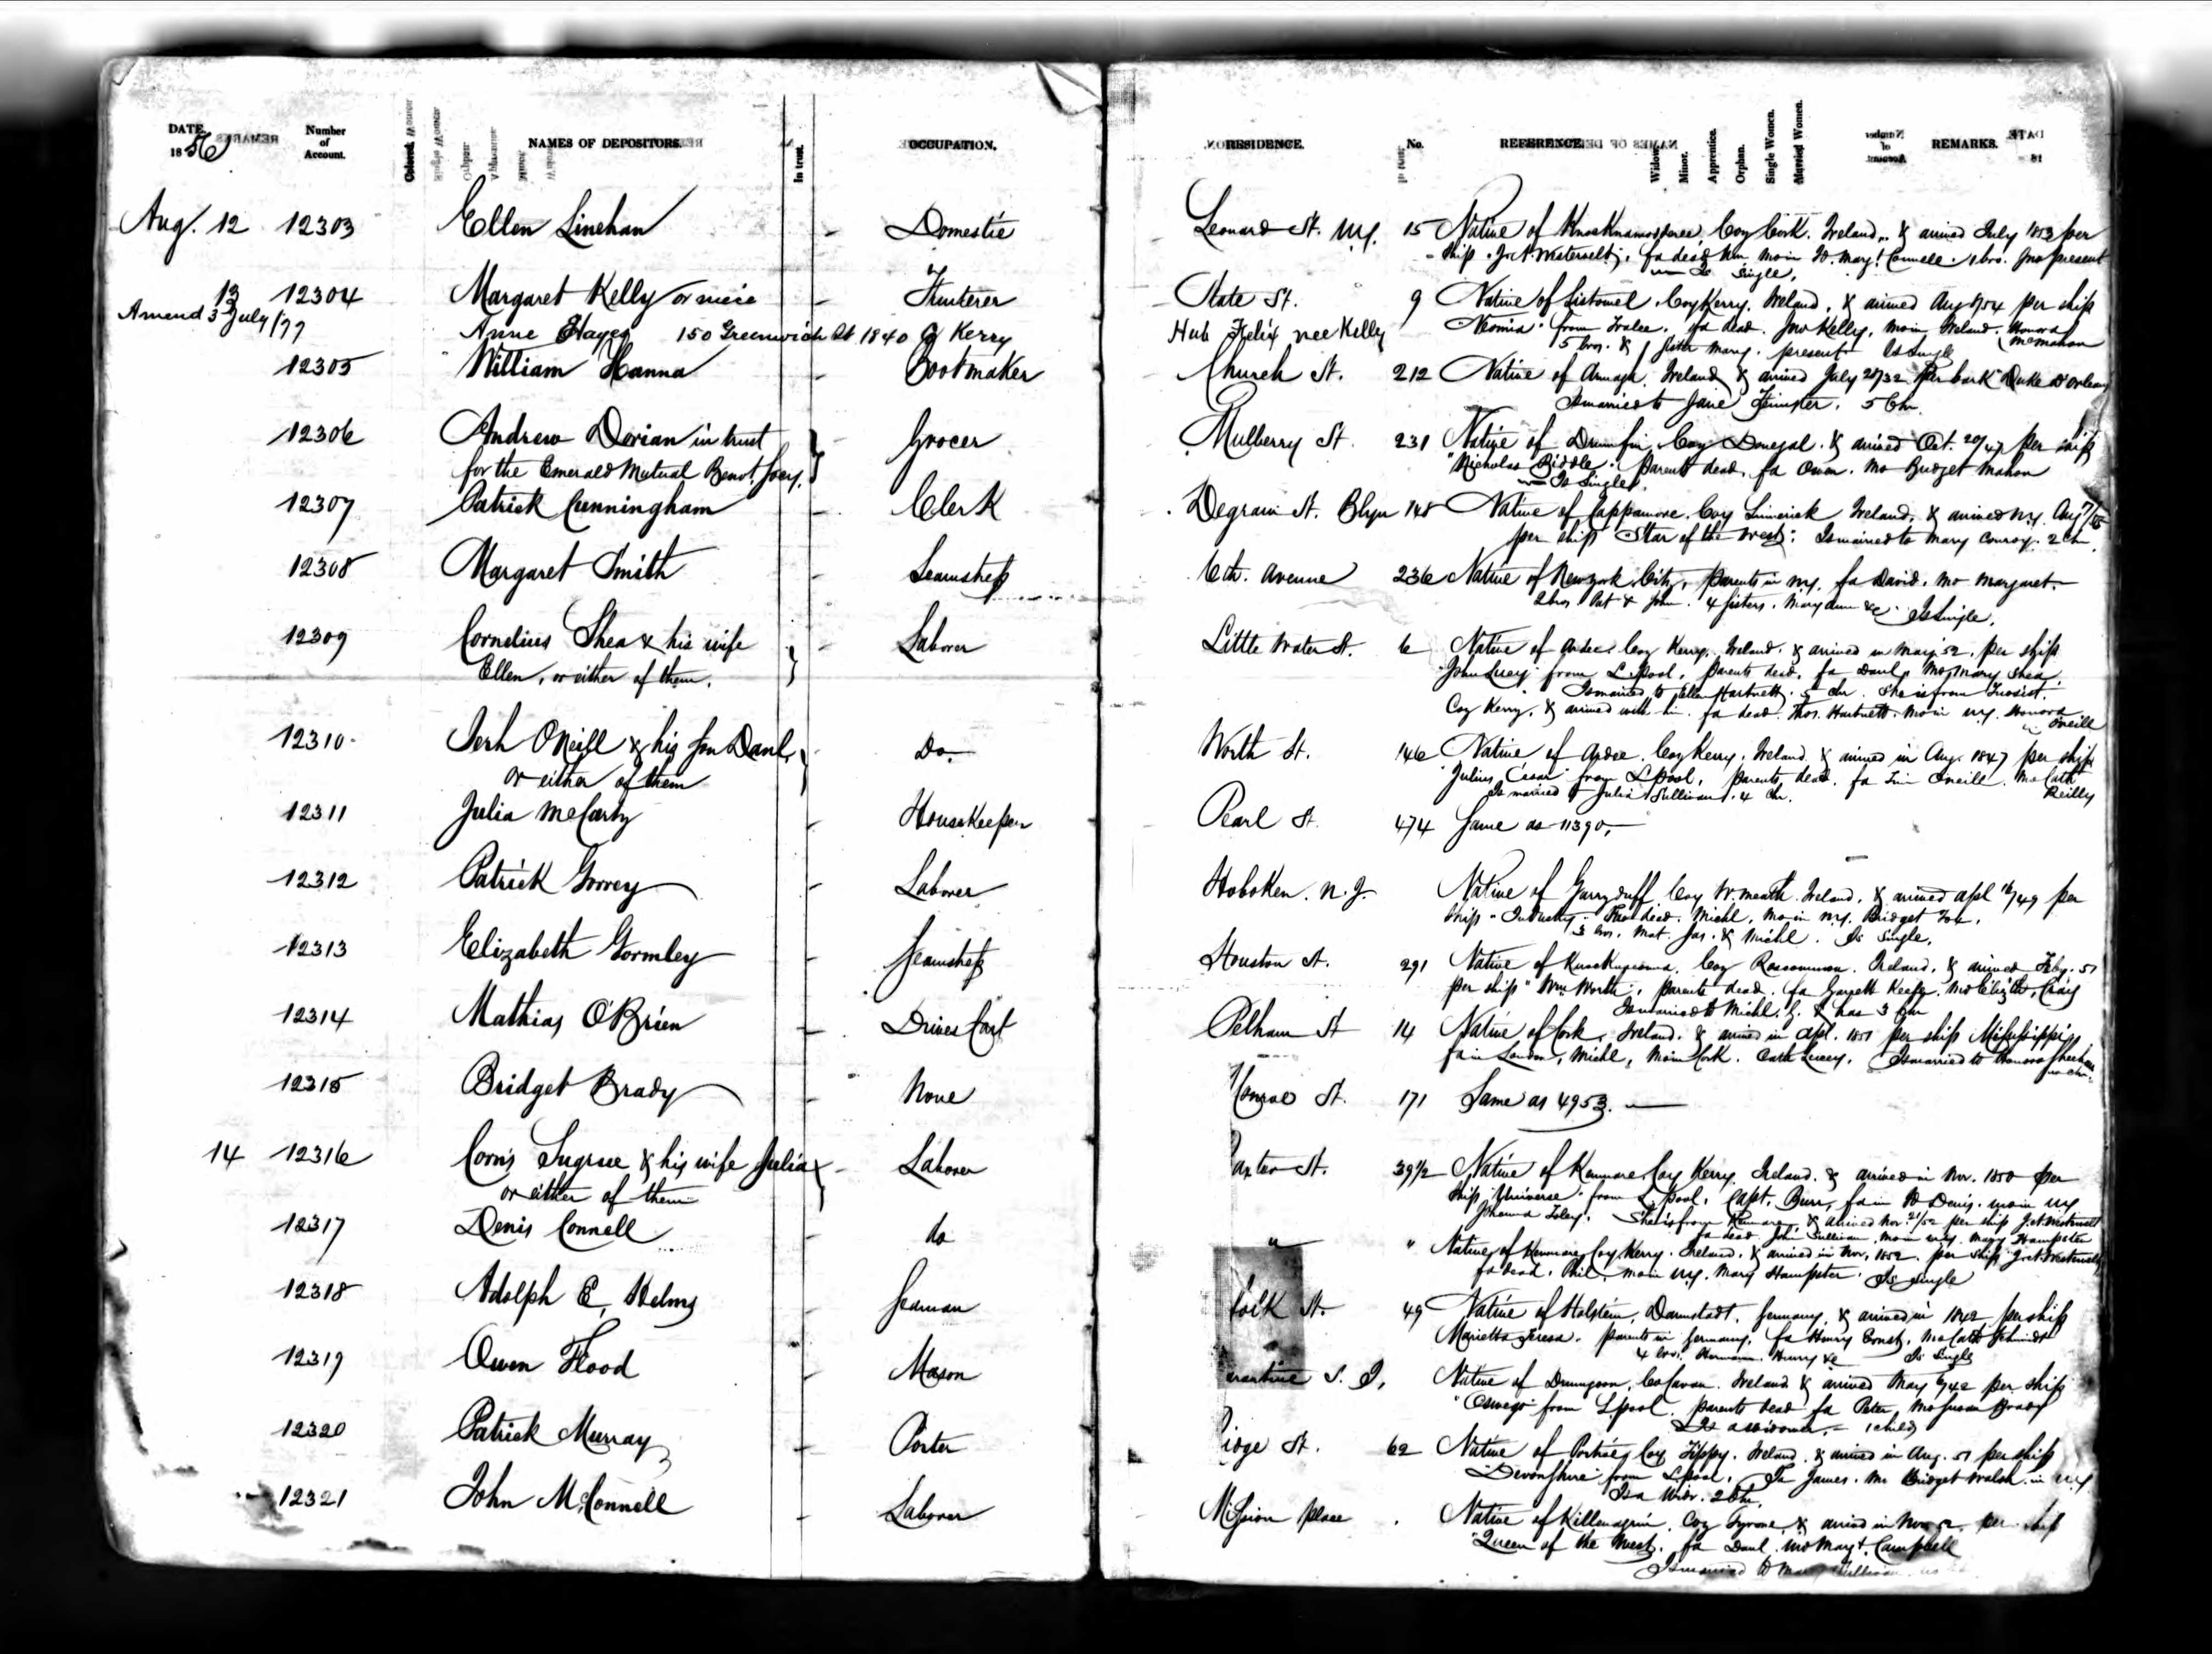 DATE. 1856 Number of Account. NAMES OF DEPOSITORS. In trust. OCCUPATION. RESIDENCE. No. REFERENCE. Widow. Minor. Apprentice. Orphan. Single Women. Married Women. REMARKS.
Aug. 12 12303 Ellen Linehan - Domestic Leonard St. N.Y. 15 Native of Coy Cork. Ireland, & arrived July 1853 per
ship fa dead Wm mo in Do. Margt. Connell. 1 bro. Jno present
Is Single.
13 12304 Margaret Kelly or niece - State St. 9 Native of Listowel, Coy Kerry, Ireland, & arrived Aug /54 per ship
Amend 3 July /77 Anne Hayes 150 Greenwich St 1840 Co Kerry Hub Felix nee Kelly from Tralee. fa dead. Jno Kelly, mo in Ireland. Honora McMahon
5 bros. & 1 sister Mary. present Is Single
12305 William Hanna - Bootmaker Church St. 212 Native of Armagh, Ireland & arrived July 28/32 Per bark "Duke D'Orleans
Is married to Jane 5 Chn.
12306 Andrew Dorian in trust - Grocer Mulberry St. 231 Native of Coy Donegal. & arrived Oct. 20/47 per ship
for the Emerald Mutual Benvt. Socy. "Nicholas Biddle". Parents dead, fa Owen. Mo Bridget Mahon
Is Single.
12307 Patrick Cunningham - Clerk Degraw St. Blyn 148 Native of Cappamore, Coy Limerick Ireland, & arrived N.Y. Aug
per ship Star of the West. Is married to Mary Conroy. 2 Chn.
12308 Margaret Smith - Seamstress 6th. Avenue 236 Native of New York City, parents in N.Y. fa David. Mo Margaret.
2 bros. Pat & John. 4 sisters. Mary Ann &c. Is Single.
12309 Cornelius Shea & his wife - Laborer Little Water St. 6 Native of Ardee Coy Kerry, Ireland. & arrived in May 52. per ship
Ellen, or either of them. "John Lucy" from L.pool, parents dead, fa Danl, Mo Mary Shea.
Is married to Ellen Hartnett. 5 chn. She is from Tuosist.
Coy Kerry, & arrived with him. fa dead. Thos. Hartnett. Mo in N.Y. Honora Oneill
12310 Jerh O'Neill & his son Danl. - Do. Worth St. 146 Native of Ardee. Coy Kerry. Ireland & arrived in Aug. 1847 per ship
or either of them "Julius Cesar" from L.pool, parents dead. fa Tim Oneill. Mo Cath Reilly
Is married to Julia Sullivan. 4 chn.
12311 Julia McCarty - Housekeeper Pearl St. 474 Same as 11390.
12312 Patrick Gorrey - Laborer Hoboken. N.J. Native of Garryduff Coy W.meath. Ireland, & arrived Apl 16/49 per
ship "Industry". Fa dead. Michl, Mo in N.Y. Bridget Fox.
3 bros. Mat. Jas. & Michl. Is Single.
12313 Elizabeth Gormley - Seamstress Houston St. 291 Native of Coy Roscommon. Ireland. & arrived Feby. 51
per ship "Wm Worth", parents dead. fa Garrett Keefe. Mo Elizth. Craig
Is married to Michl. G. & has 3 Chn
12314 Mathias O'Brien - Drives Cart Pelham St 14 Native of Cork, Ireland. & arrived in Apl. 1851 per ship Mississippi
fa in London, Michl, Mo in Cork. Cath Lucey. Is married to Honora Sheehan no chn.
12315 Bridget Brady - None Monroe St. 171 Same as 4953.
14 12316 Corns Sugrue & his wife Julia - Laborer axter St. 39½ Native of Kenmare Coy Kerry Ireland. & arrived in Nov. 1850 per
or either of them ship "Universe" from L.pool, Capt. Burr, fa in Do Denis. mo in N.Y.
Johanna Foley. She is from Kenmare, & arrived Nov. 21/52 per ship J.A. Westervelt
fa dead John Sullivan, mo in N.Y. Mary Hampster
12317 Denis Connell do " " Native of Kenmare Coy Kerry. Ireland, & arrived in Nov, 1852. per ship J.A. Westervelt
fa dead. Phil. mo in N.Y. Mary Hampster. Is Single
12318 Adolph E. Helms Seaman St. 49 Native of Holstein, Darmstadt, Germany, & arrived in per ship
Marietta Teresa. parents in Germany, fa Henry Ernst. Mo Cath Schmidt
4 bros. Hermann Henry &c Is Single
12319 Owen Flood - Mason S. I. Native of Drumgoon, Co Cavan. Ireland & arrived May 6/42 per ship
"Oswego" from L.pool. parents dead fa Peter, Mo Susan Brady
Is a widower. - 1 child
12320 Patrick Murray - Porter idge St. 62 Native of Coy Tippy. Ireland. & arrived in Aug. 51 per ship
Devonshire from L.pool. Fa James. Mo Bridget Walsh in N.Y.
Is a Widr. 2 Chn.
12321 John McConnell - Laborer Mission Place Native of Coy Tyrone, & arrived in Nov 52. per ship
"Queen of the West. fa Danl. Mo Margt. Campbell
Is married to Mary Sullivan